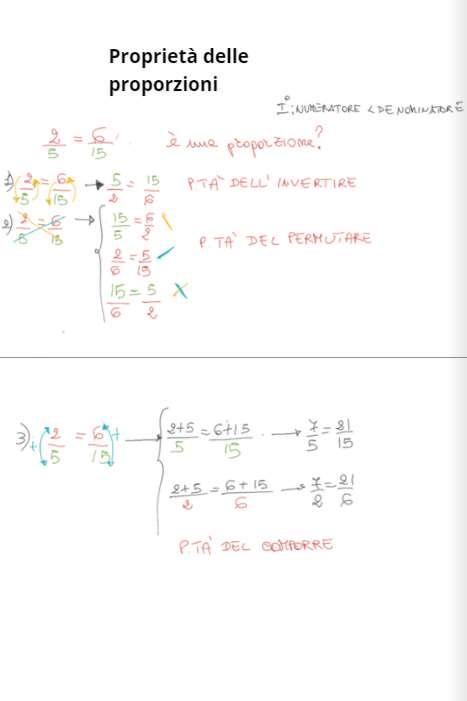 Proprietà delle
proporzioni
I°: NUMERATORE < DENOMINATORE
2/5 = 6/15 è una proporzione?
1) 2/5 = 6/15 → 5/2 = 15/6 P.TÀ DELL'INVERTIRE
2) 2/5 = 6/15 → 15/5 = 6/2
P.TÀ DEL PERMUTARE
2/6 = 5/15
15/6 = 5/2
3) + 2/5 = 6/15 + → 2+5/5 = 6+15/15 → 7/5 = 21/15
2+5/2 = 6+15/6 → 7/2 = 21/6
P.TÀ DEL COMPORRE